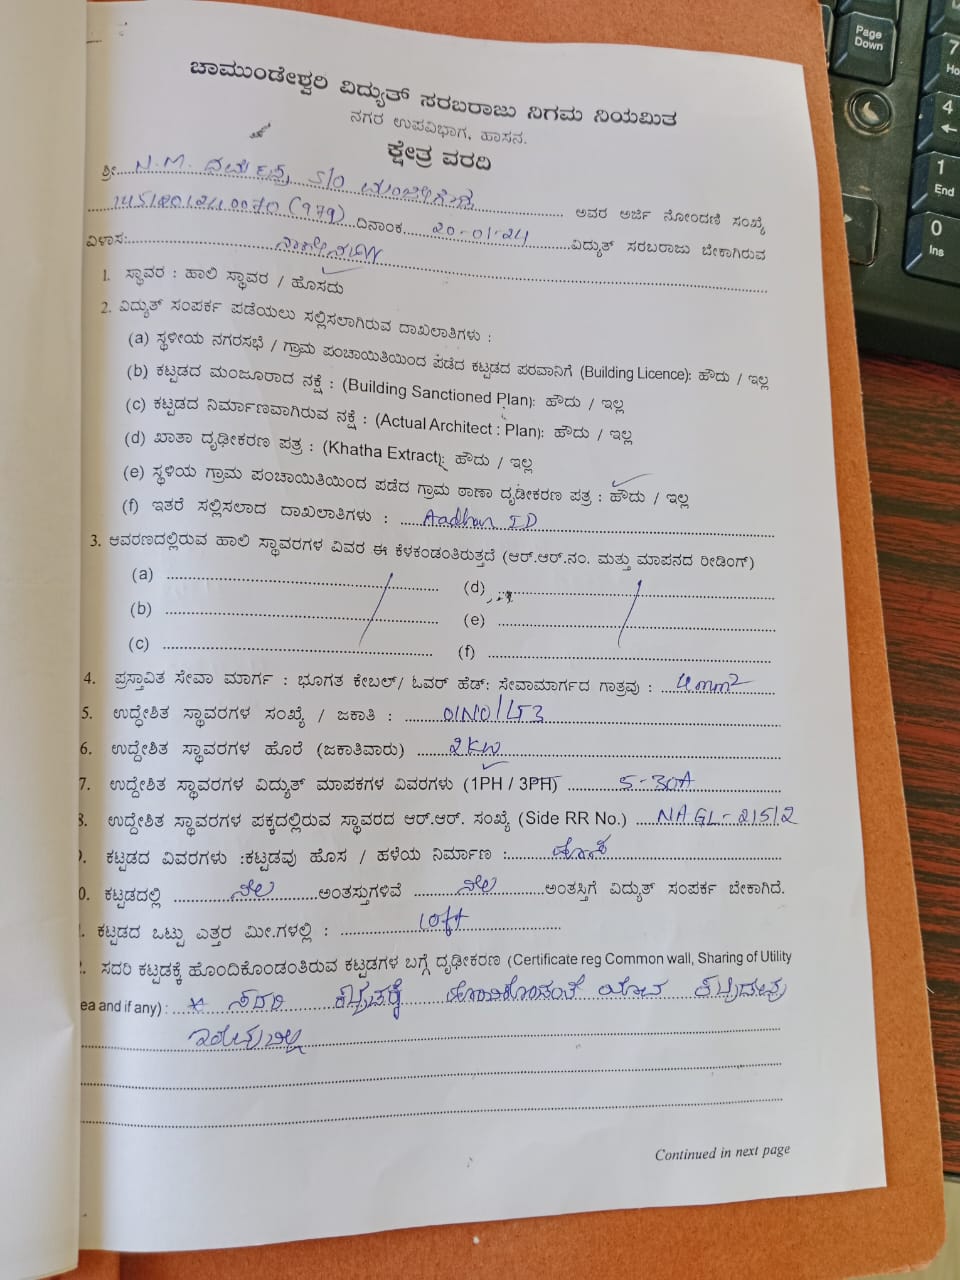 ಚಾಮುಂಡೇಶ್ವರಿ ವಿದ್ಯುತ್ ಸರಬರಾಜು ನಿಗಮ ನಿಯಮಿತ
ನಗರ ಉಪವಿಭಾಗ, ಹಾಸನ.
ಕ್ಷೇತ್ರ ವರದಿ
ಶ್ರೀ. N.M. ಧರ್ಮೇಂದ್ರ S/O ಮಂಜೇಗೌಡ ಅವರ ಅರ್ಜಿ ನೋಂದಣಿ ಸಂಖ್ಯೆ
ದಿನಾಂಕ 20-01-24 ವಿದ್ಯುತ್ ಸರಬರಾಜು ಬೇಕಾಗಿರುವ
ವಿಳಾಸ:
1. ಸ್ಥಾವರ : ಹಾಲಿ ಸ್ಥಾವರ / ಹೊಸದು
2. ವಿದ್ಯುತ್ ಸಂಪರ್ಕ ಪಡೆಯಲು ಸಲ್ಲಿಸಲಾಗಿರುವ ದಾಖಲಾತಿಗಳು :
(a) ಸ್ಥಳೀಯ ನಗರಸಭೆ / ಗ್ರಾಮ ಪಂಚಾಯಿತಿಯಿಂದ ಪಡೆದ ಕಟ್ಟಡದ ಪರವಾನಿಗೆ (Building Licence): ಹೌದು / ಇಲ್ಲ
(b) ಕಟ್ಟಡದ ಮಂಜೂರಾದ ನಕ್ಷೆ : (Building Sanctioned Plan): ಹೌದು / ಇಲ್ಲ
(c) ಕಟ್ಟಡದ ನಿರ್ಮಾಣವಾಗಿರುವ ನಕ್ಷೆ : (Actual Architect : Plan): ಹೌದು / ಇಲ್ಲ
(d) ಖಾತಾ ದೃಢೀಕರಣ ಪತ್ರ : (Khatha Extract): ಹೌದು / ಇಲ್ಲ
(e) ಸ್ಥಳಿಯ ಗ್ರಾಮ ಪಂಚಾಯಿತಿಯಿಂದ ಪಡೆದ ಗ್ರಾಮ ಠಾಣಾ ದೃಡೀಕರಣ ಪತ್ರ : ಹೌದು / ಇಲ್ಲ
(f) ಇತರೆ ಸಲ್ಲಿಸಲಾದ ದಾಖಲಾತಿಗಳು : Aadhar ID
3. ಆವರಣದಲ್ಲಿರುವ ಹಾಲಿ ಸ್ಥಾವರಗಳ ವಿವರ ಈ ಕೆಳಕಂಡಂತಿರುತ್ತದೆ (ಆರ್.ಆರ್.ನಂ. ಮತ್ತು ಮಾಪನದ ರೀಡಿಂಗ್)
(a) (d)
(b) (e)
(c) (f)
4. ಪ್ರಸ್ತಾವಿತ ಸೇವಾ ಮಾರ್ಗ : ಭೂಗತ ಕೇಬಲ್/ ಓವರ್ ಹೆಡ್: ಸೇವಾಮಾರ್ಗದ ಗಾತ್ರವು : 4mm²
5. ಉದ್ಧೇಶಿತ ಸ್ಥಾವರಗಳ ಸಂಖ್ಯೆ / ಜಕಾತಿ : 01NO/LT3
6. ಉದ್ದೇಶಿತ ಸ್ಥಾವರಗಳ ಹೊರೆ (ಜಕಾತಿವಾರು) 2KW
7. ಉದ್ದೇಶಿತ ಸ್ಥಾವರಗಳ ವಿದ್ಯುತ್ ಮಾಪಕಗಳ ವಿವರಗಳು (1PH / 3PH) 5-30A
8. ಉದ್ದೇಶಿತ ಸ್ಥಾವರಗಳ ಪಕ್ಕದಲ್ಲಿರುವ ಸ್ಥಾವರದ ಆರ್.ಆರ್. ಸಂಖ್ಯೆ (Side RR No.) NAGL-21512
ಕಟ್ಟಡದ ವಿವರಗಳು :ಕಟ್ಟಡವು ಹೊಸ / ಹಳೆಯ ನಿರ್ಮಾಣ : ಹೊಸ
0. ಕಟ್ಟಡದಲ್ಲಿ ನೆಲ ಅಂತಸ್ತುಗಳಿವೆ ನೆಲ ಅಂತಸ್ತಿಗೆ ವಿದ್ಯುತ್ ಸಂಪರ್ಕ ಬೇಕಾಗಿದೆ.
ಕಟ್ಟಡದ ಒಟ್ಟು ಎತ್ತರ ಮೀ.ಗಳಲ್ಲಿ : 10ft
ಸದರಿ ಕಟ್ಟಡಕ್ಕೆ ಹೊಂದಿಕೊಂಡಂತಿರುವ ಕಟ್ಟಡಗಳ ಬಗ್ಗೆ ದೃಢೀಕರಣ (Certificate reg Common wall, Sharing of Utility
ea and if any) : * ಸದರಿ ಕಟ್ಟಡಕ್ಕೆ ಹೊಂದಿಕೊಂಡಂತೆ ಯಾವ ಕಟ್ಟಡವು
ಇರುವುದಿಲ್ಲ
Continued in next page
Page Down
7
4
1 End
0 Ins